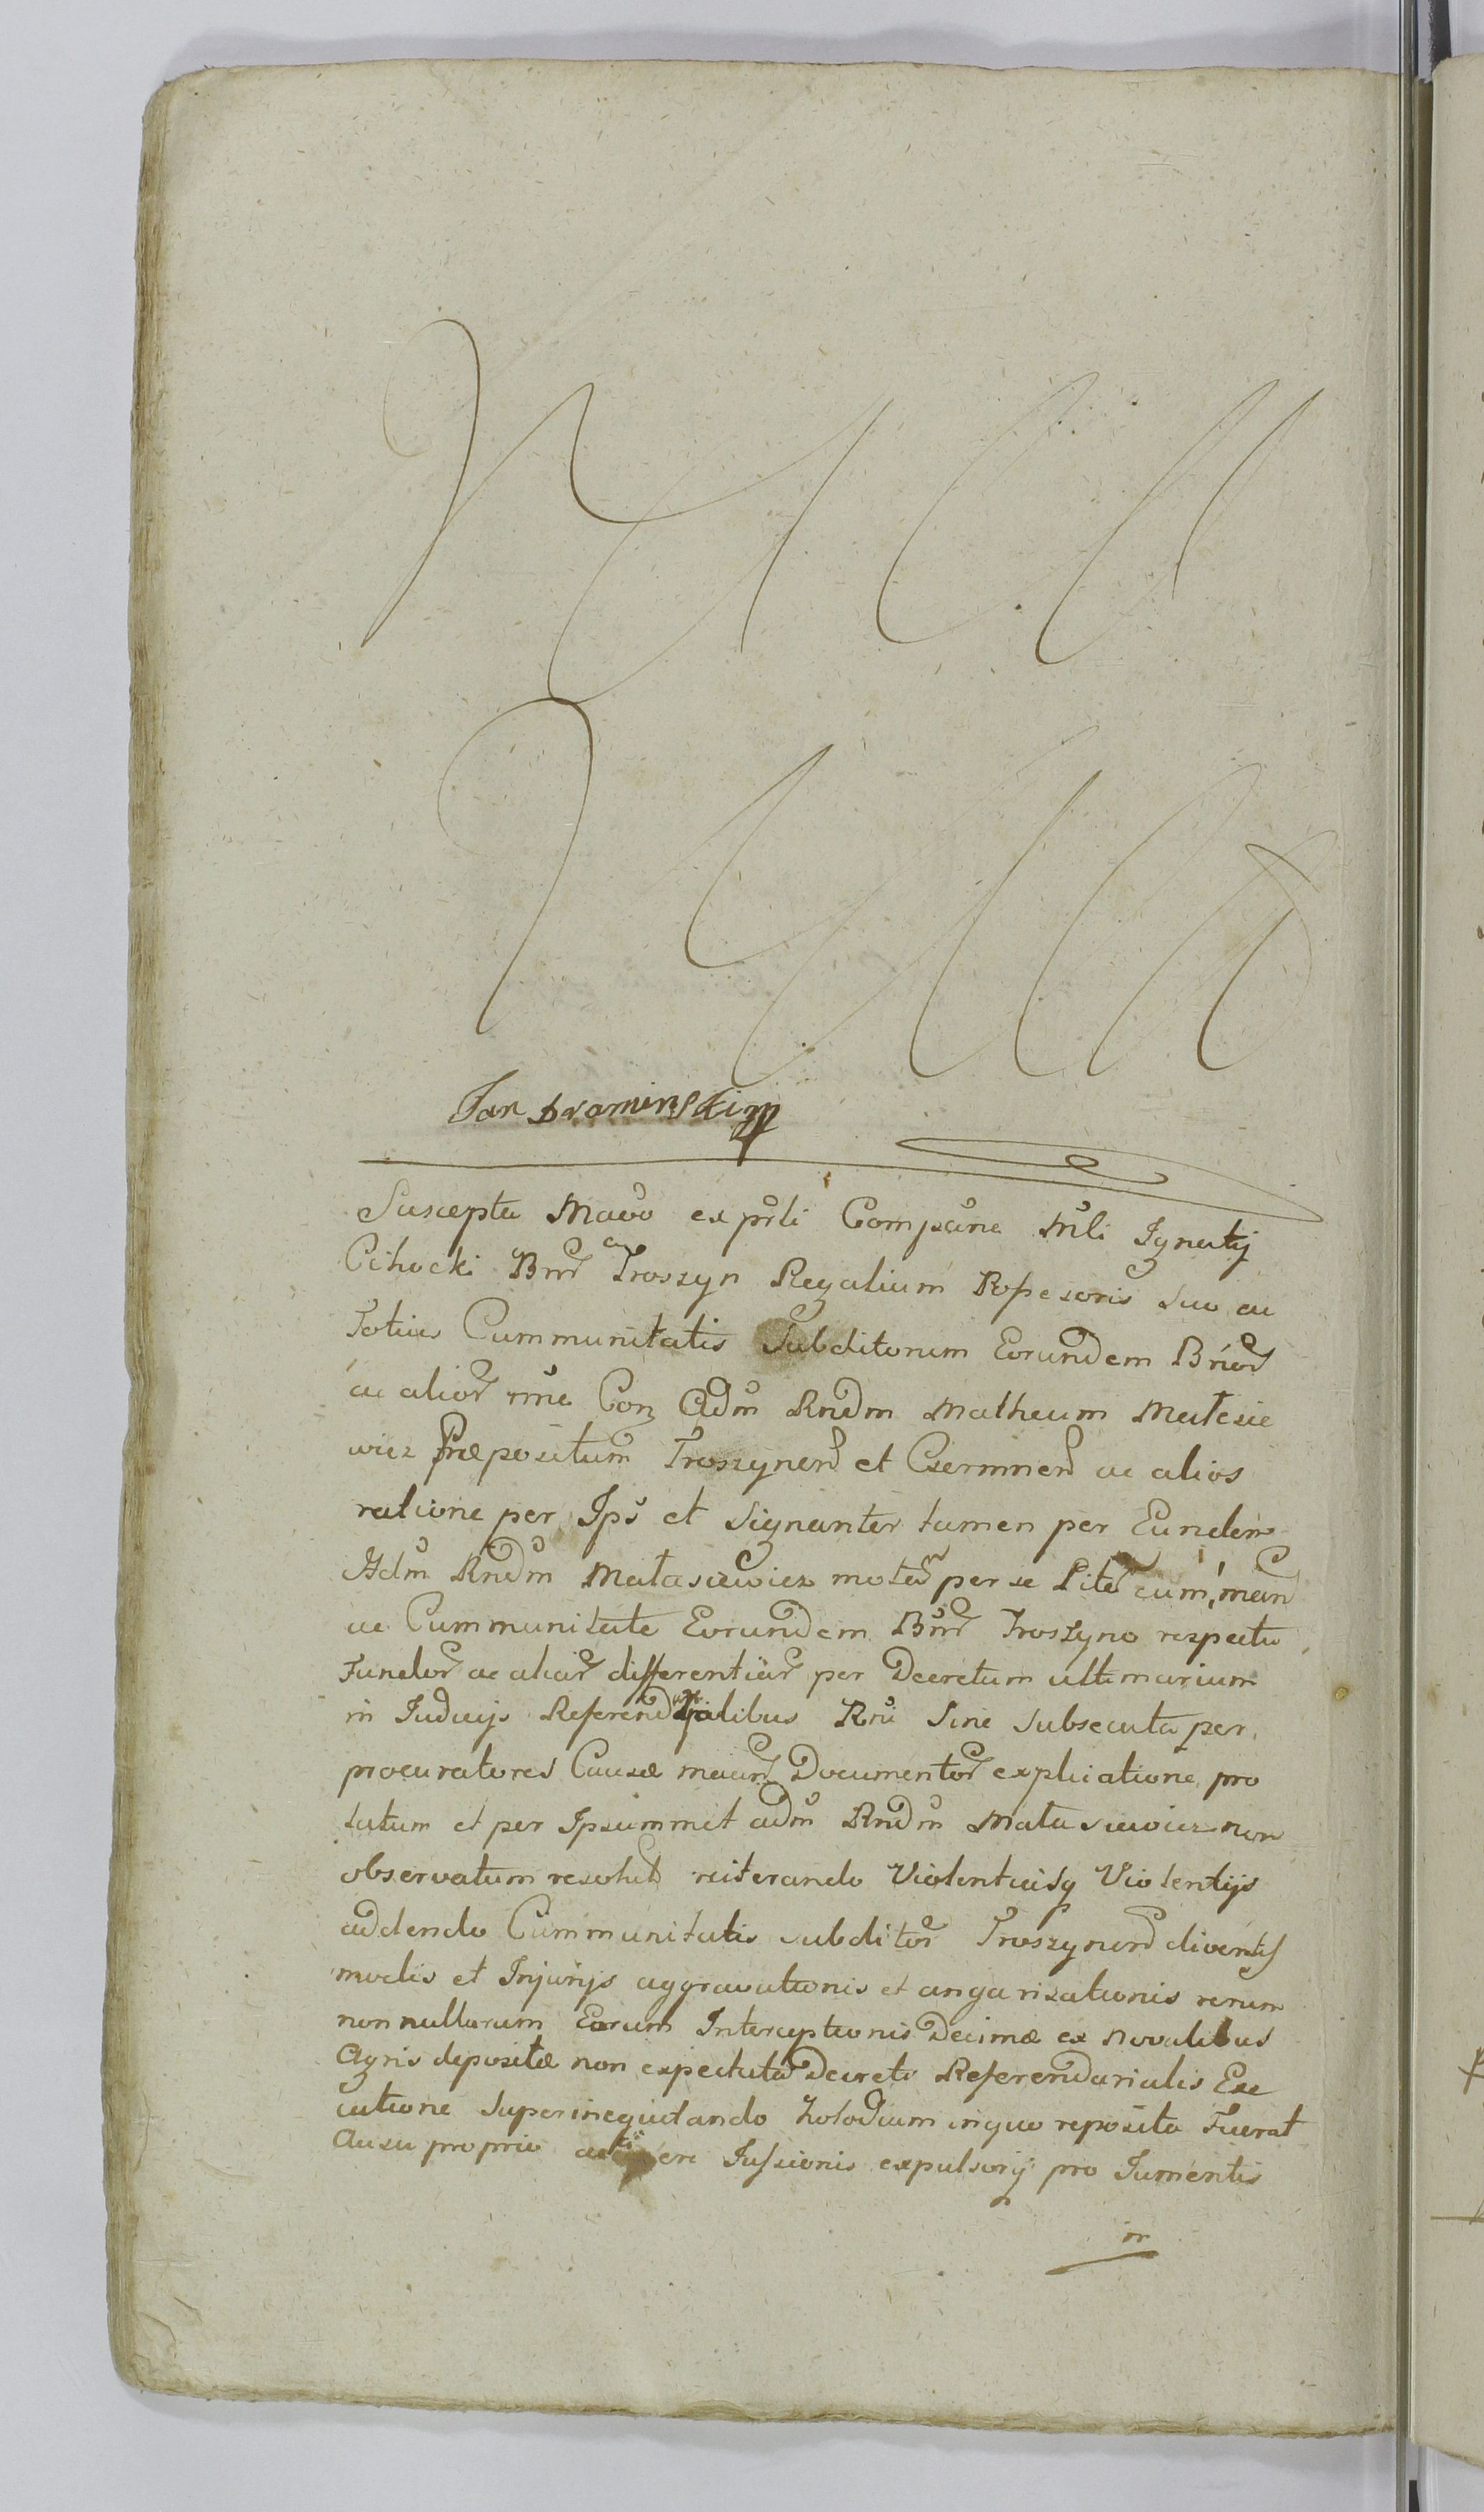 Jan Draminski mp
Suscepta Mavo ex prli Compane Mli Ignatij
Cichocki Bnr Troszyn Regalium Possesoris suo ac
Totius Cummunitatis Subditorum Eorundem Bnor
ac alior nne Con Adm Rndm Matheum Matesie
wicz Præpositum Troszynen et Czermnen ac alios
ratione per Ips et signanter tamen per Eundem
Adm Rndm Matasiewicz motar per se Lite cum man
ac Cummunitate Eorundem Bnr Troszyno respectu
Fundor ac aliar differentiar per Decretum ultimarium
in Judicijs Referendarialibus Rni sine subsecuta per
procuratores Causæ mear Documentor explicatione pro
latum et per Ipsummet adm Rndm Matasiewicz non
observatum resolut reiterando Violentiasq Violentijs
addendo Cummunitatis subditor Troszynen diversis
modis et Injurijs aggravationis et angarisationis rerum
non nullarum Earum Interceptionis Decimæ ex Novalibus
Agris depositæ non expectata Decreti Referendarialis Exe
cutione superinequitando Zolodium inquo reposita Fuerat
Ausu proprio Jussionis expulsorij pro Jumentis
in